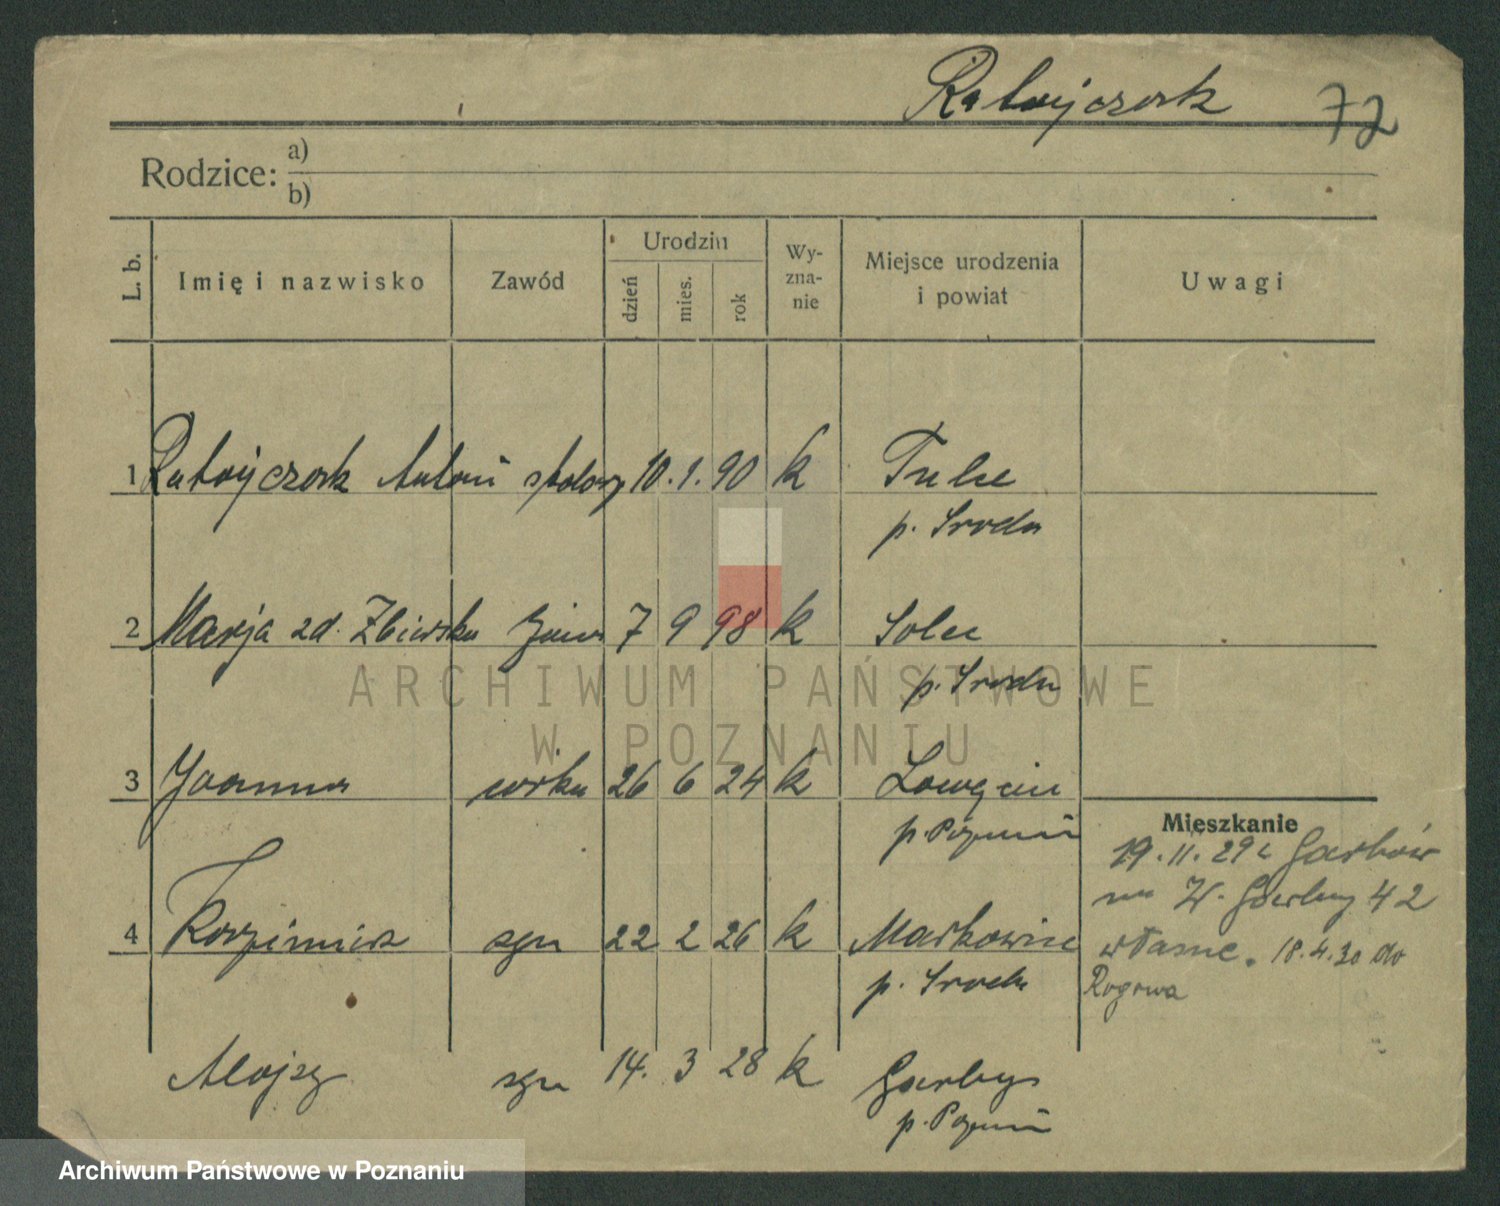 Ratajczak 72
Rodzice: a)
b)
L. b. Imię i nazwisko Zawód Urodzin dzień mies. rok Wy-zna-nie Miejsce urodzenia i powiat Uwagi
1 Ratajczak Antoni stolarz 10. 1. 90 k Tulce
p. Środa
2 Marja zd. żona 7 9 98 k Solec
p. Środa
ARCHIWUM PAŃSTWOWE
W POZNANIU
3 Joanna córka 26 6 24 k
p. Poznań
Mieszkanie
19. 11. 29 z Garbów
na W. Garbary 42
4 Kazimierz syn 22 2 26 k Markowice
p. Środa
własne. 18.4.30 do
Rogowa
Alojzy syn 14. 3 28 k Garby
p. Poznań
Archiwum Państwowe w Poznaniu